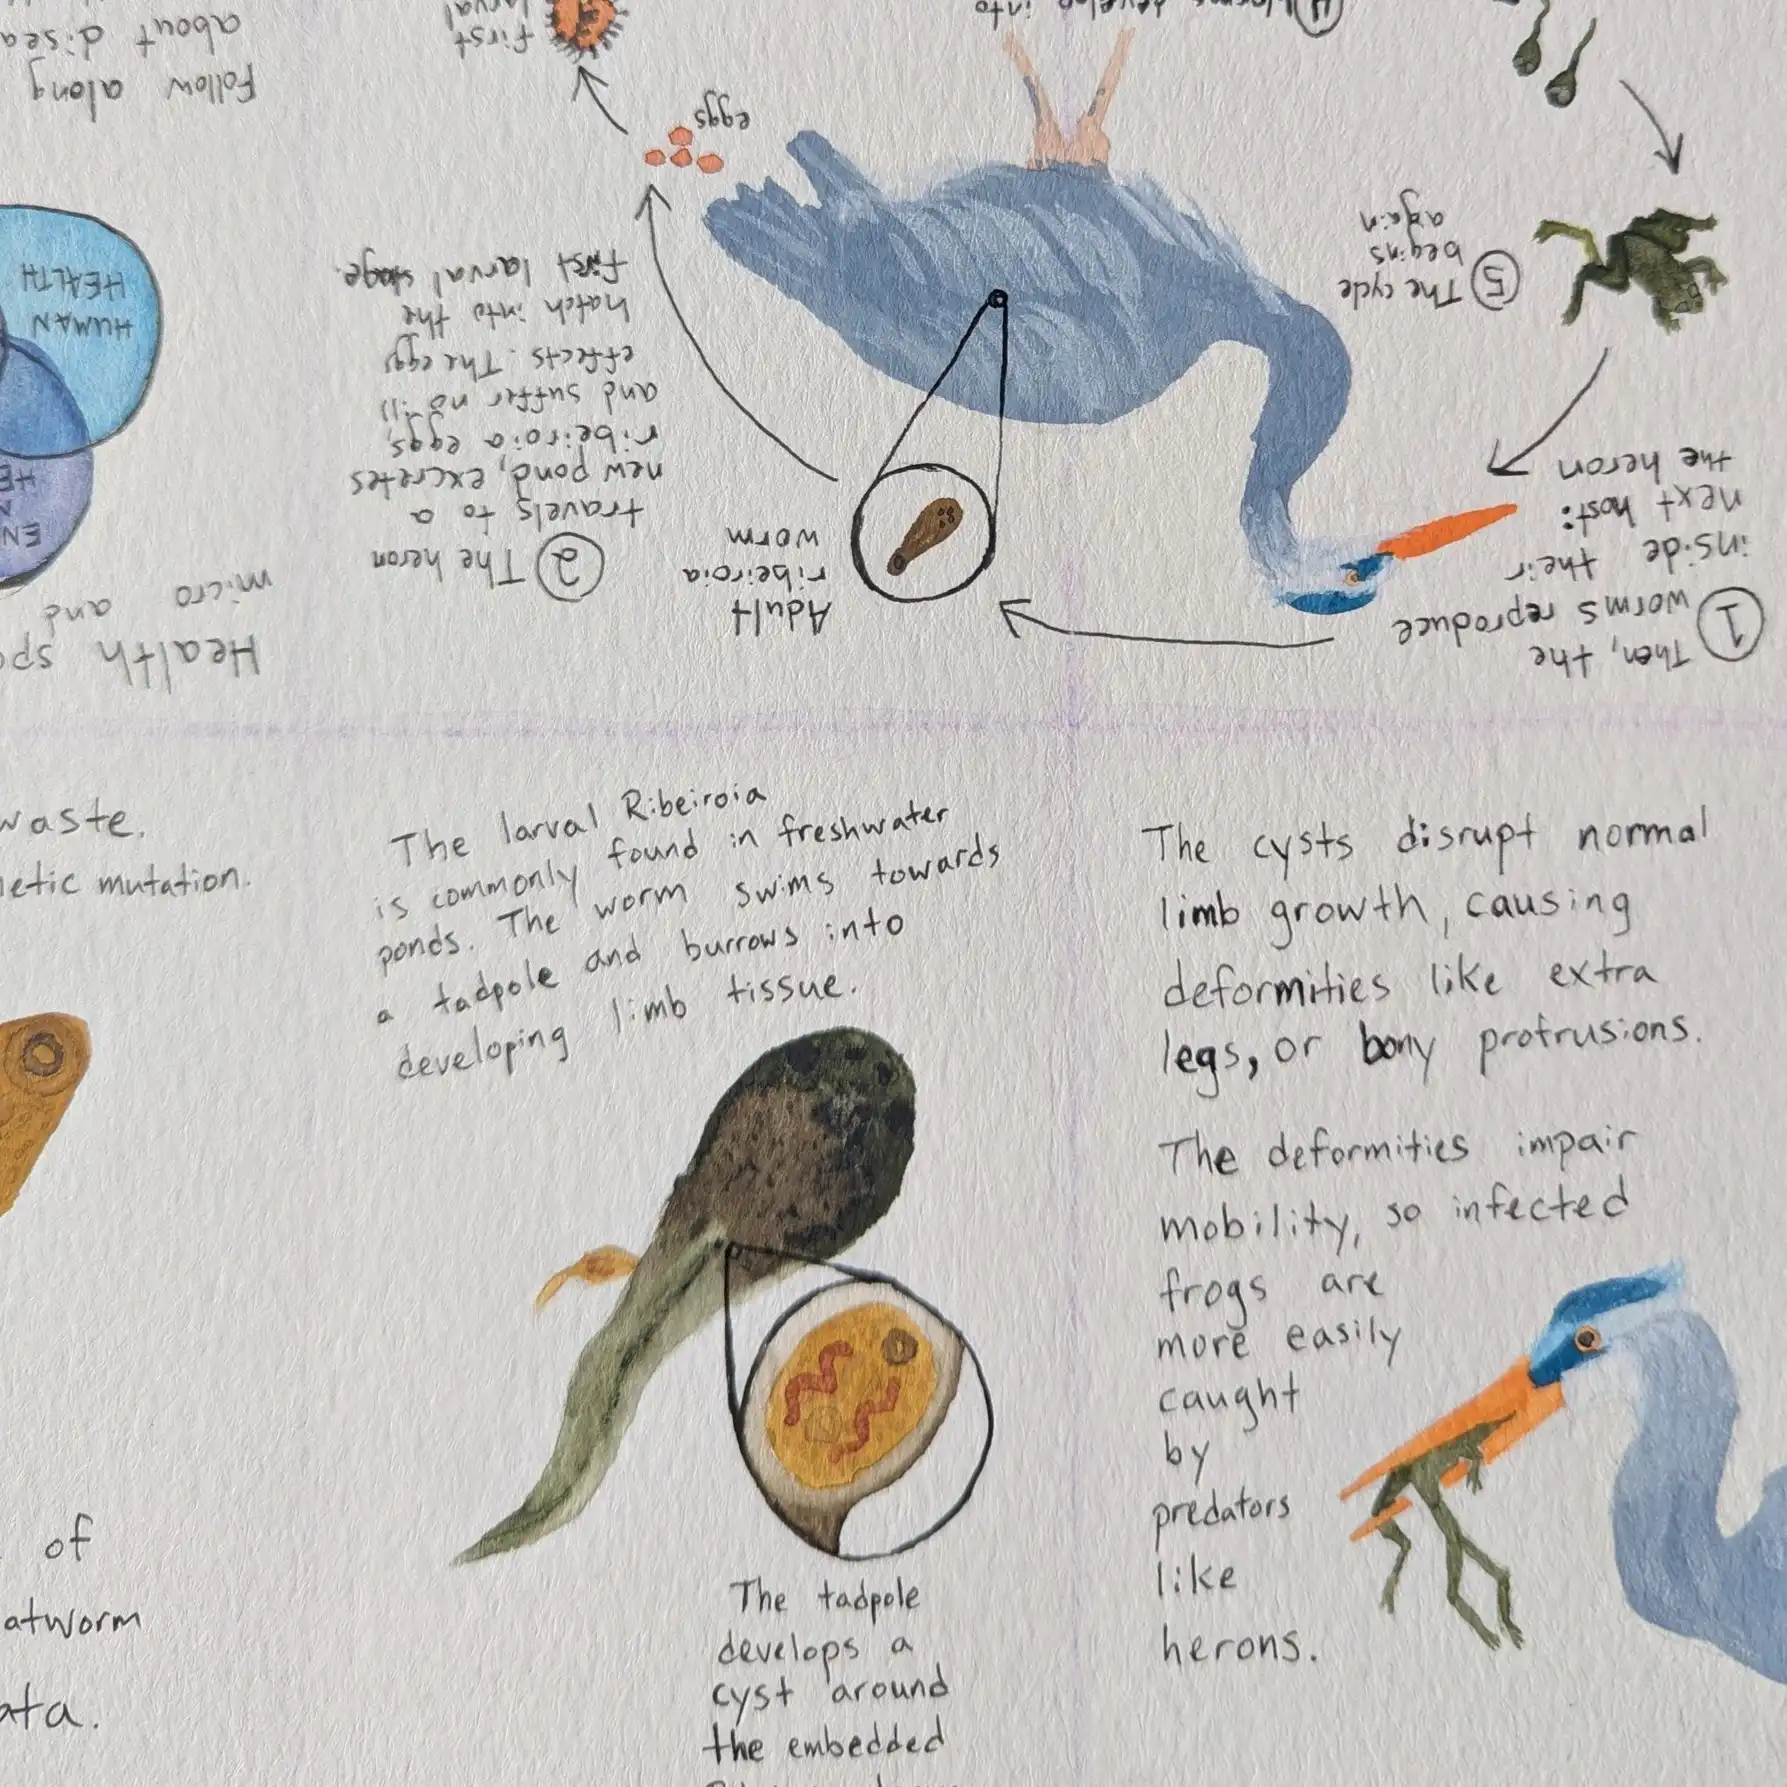 waste.
netic mutation.
of
atworm
ata.
The larval Ribeiroia
is commonly found in freshwater
ponds. The worm swims towards
a tadpole and burrows into
developing limb tissue.
The tadpole
develops a
cyst around
the embedded
The cysts disrupt normal
limb growth, causing
deformities like extra
legs, or bony protrusions.
The deformities impair
mobility, so infected
frogs are
more easily
caught
by
predators
like
herons.
1 Then, the
worms reproduce
inside their
next host:
the heron
Adult
ribeiroia
worm
2 The heron
travels to a
new pond, excretes
ribeiroia eggs,
and suffer no ill
effects. The eggs
hatch into the
first larval stage.
eggs
first
larval
4 develop into
5 The cycle
begins
again
Health
micro and
EN
HE
HUMAN
HEALTH
Follow along
about